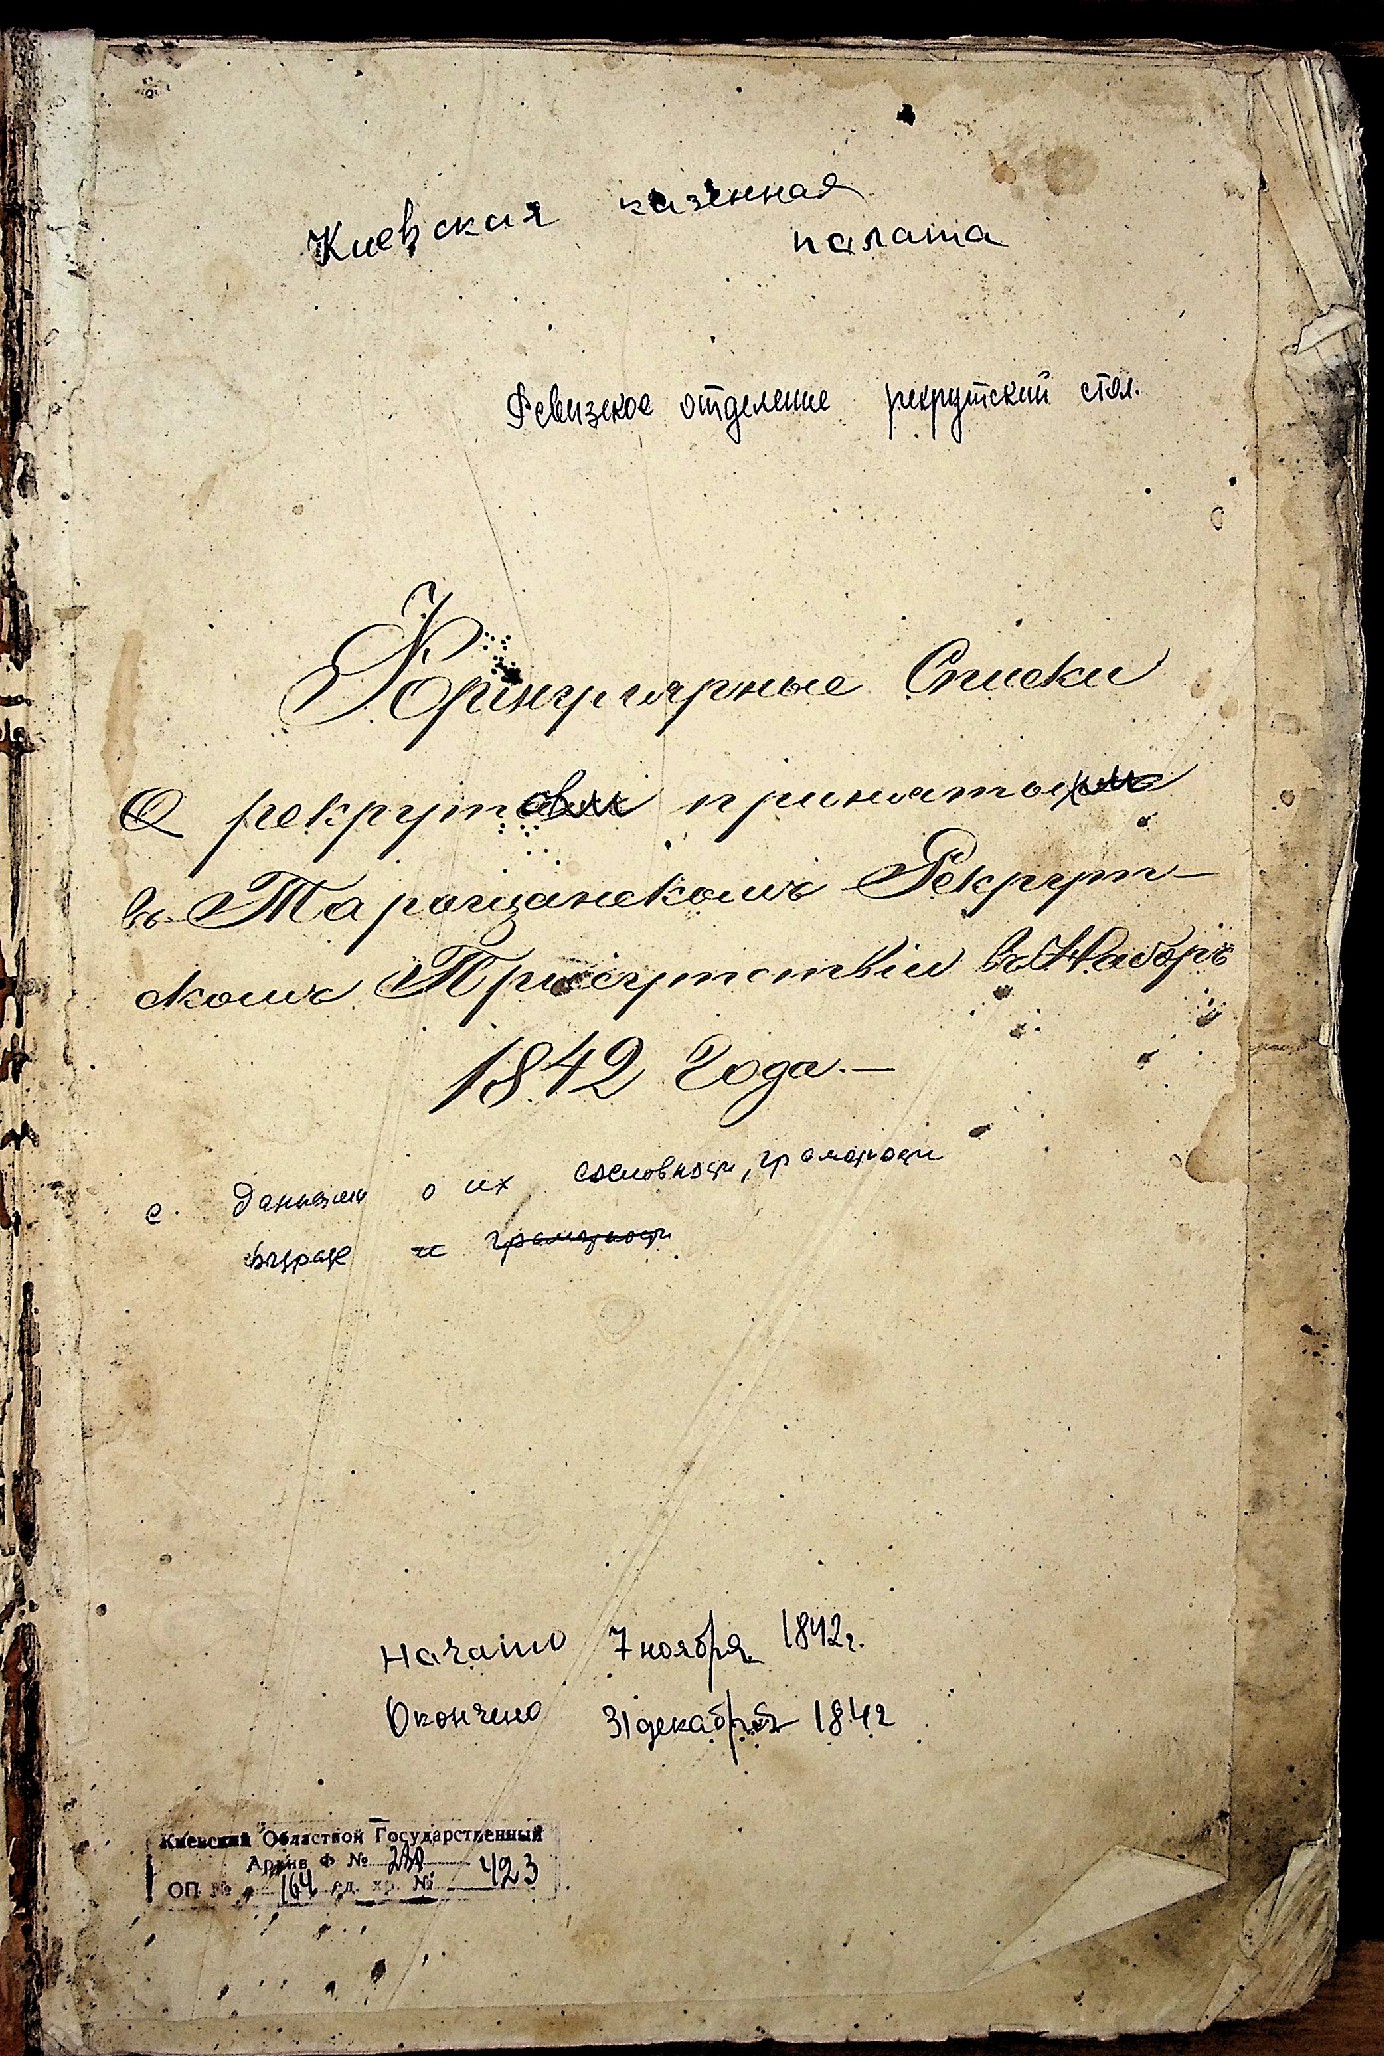 Киевская казенная
палата
Ревизское отделение рекрутский стол.
Формулярные Списки
О рекрут принятых
въ Таращанскомъ Рекрут-
скомъ Присутствіи въ Наборъ
1842 Года.—
с данными о их сословности, грамотности
и грамотности
Начато 7 ноября 1842 г.
Окончено 31 декабря 1842
Киевский Областной Государственный
Архив Ф № 280
ОП № 164 ед. хр. № 423